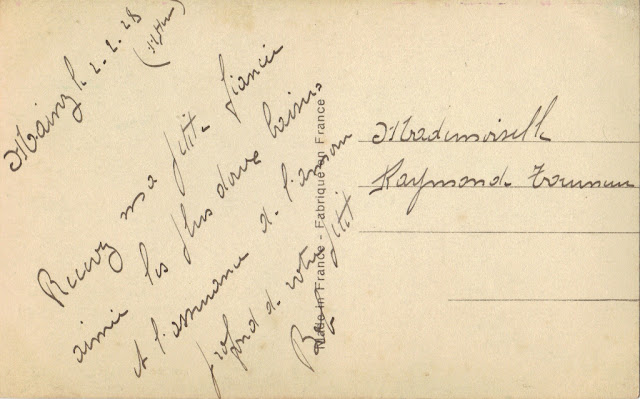 Mainz l. 2. 2. 28
Recevez ma petite fiancée
aimée les plus doux baisers
et l'assurance de l'amour
profond de votre petit
Mademoiselle
Raymonde
Made in France - Fabriqué en France